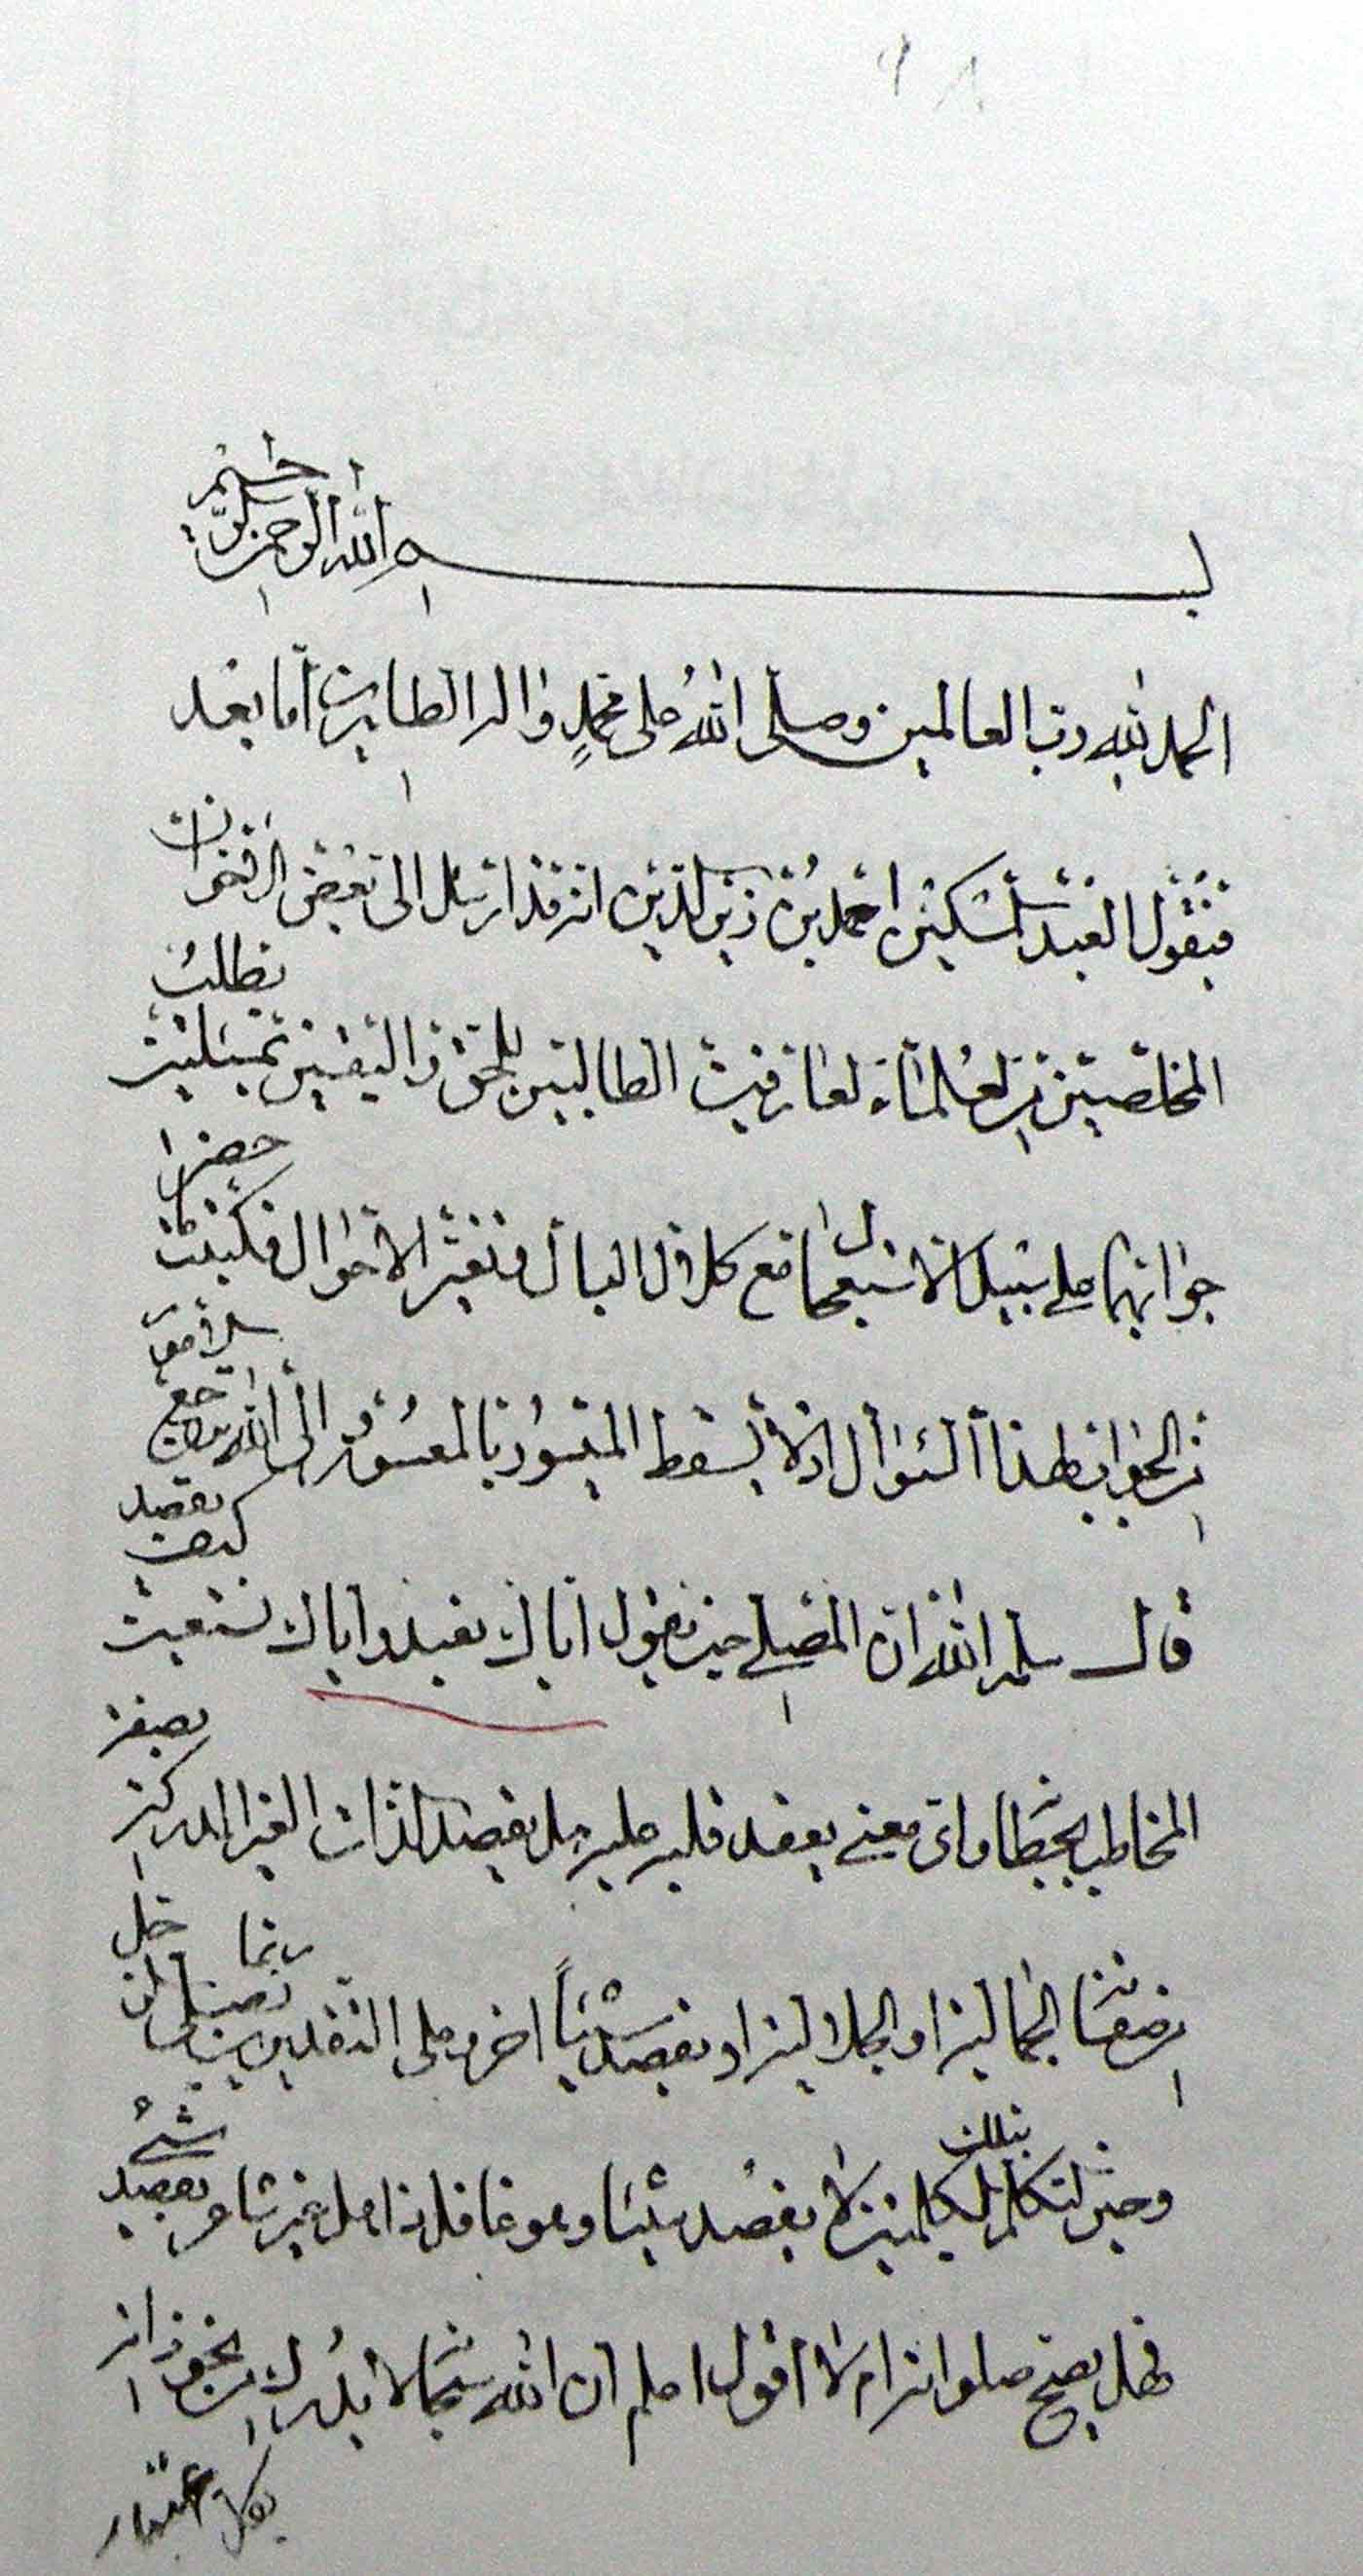 بسم الله الرحمن الرحيم
الحمد لله رب العالمين وصلى الله على محمد واله الطاهرين اما بعد
فيقول العبد المسكين احمد بن زين الدين انه قد ارسل الى بعض الاخوان
المخلصين من العلماء العارفين الطالبين للحق واليقين بمسئلتين يطلب
جوابهما على سبيل الاستعجال مع كلال البال وتغير الاحوال فكتبت ما حضرا
من الجواب لهذا السؤال اذ لا يسقط الميسور بالمعسور والى الله ترجع الامور
قال سلمه الله ان المصلي حين يقول اياك نعبد واياك نستعين كيف يقصد
المخاطب بخطابه واى معنى يعقد قلبه عليه هل يقصد الذات الغير المدركة بصفة
من صفاتنا الجمالية او الجلالية او يقصد شيئاً اخر وعلى التقديرين ربما يصلي ان
وحين التكلم بتلك الكلمتين لا يقصد شيئا وهو غافل ذاهل غير شاعر بقصد شئ
فهل يصح صلوته ام لا اقول اعلم ان الله سبحانه لا يدرك من نحو ذاته
بكل اعتبار